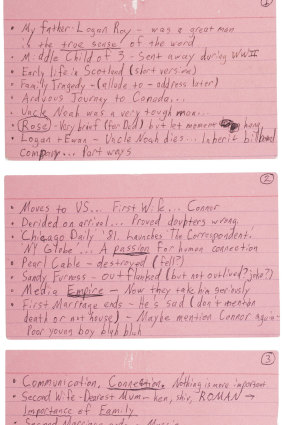 ①
• My father - Logan Roy - was a great man
in the true sense of the word
• Middle Child of 3 - Sent away during WWII
• Early life in Scotland (short version)
• Family Tragedy - (allude to - address later)
• Arduous Journey to Canada...
• Uncle Noah was a very tough man...
• (Rose) - Very brief (for Dad) but let moment hang
• Logan + Ewan - Uncle Noah dies... Inherit billboard
company... Part ways
②
• Moves to US... First Wife... Connor
• Derided on arrival... Proved doubters wrong
• Chicago Daily '81. Launches The Correspondent!
• NY Globe... A passion for human connection
• Pearl Cable - destroyed (fell?)
• Sandy Furness - outflanked (but not outlived? joke?)
• Media Empire - Now they take him seriously
• First Marriage ends - He's sad (don't mention
death or nut house) - Maybe mention Connor again -
Poor young boy blah blah
③
• Communication. Connection. Nothing is more important
• Second Wife - Dearest Mum - ken, shiv, ROMAN →
Importance of Family
• Second Marriage ends